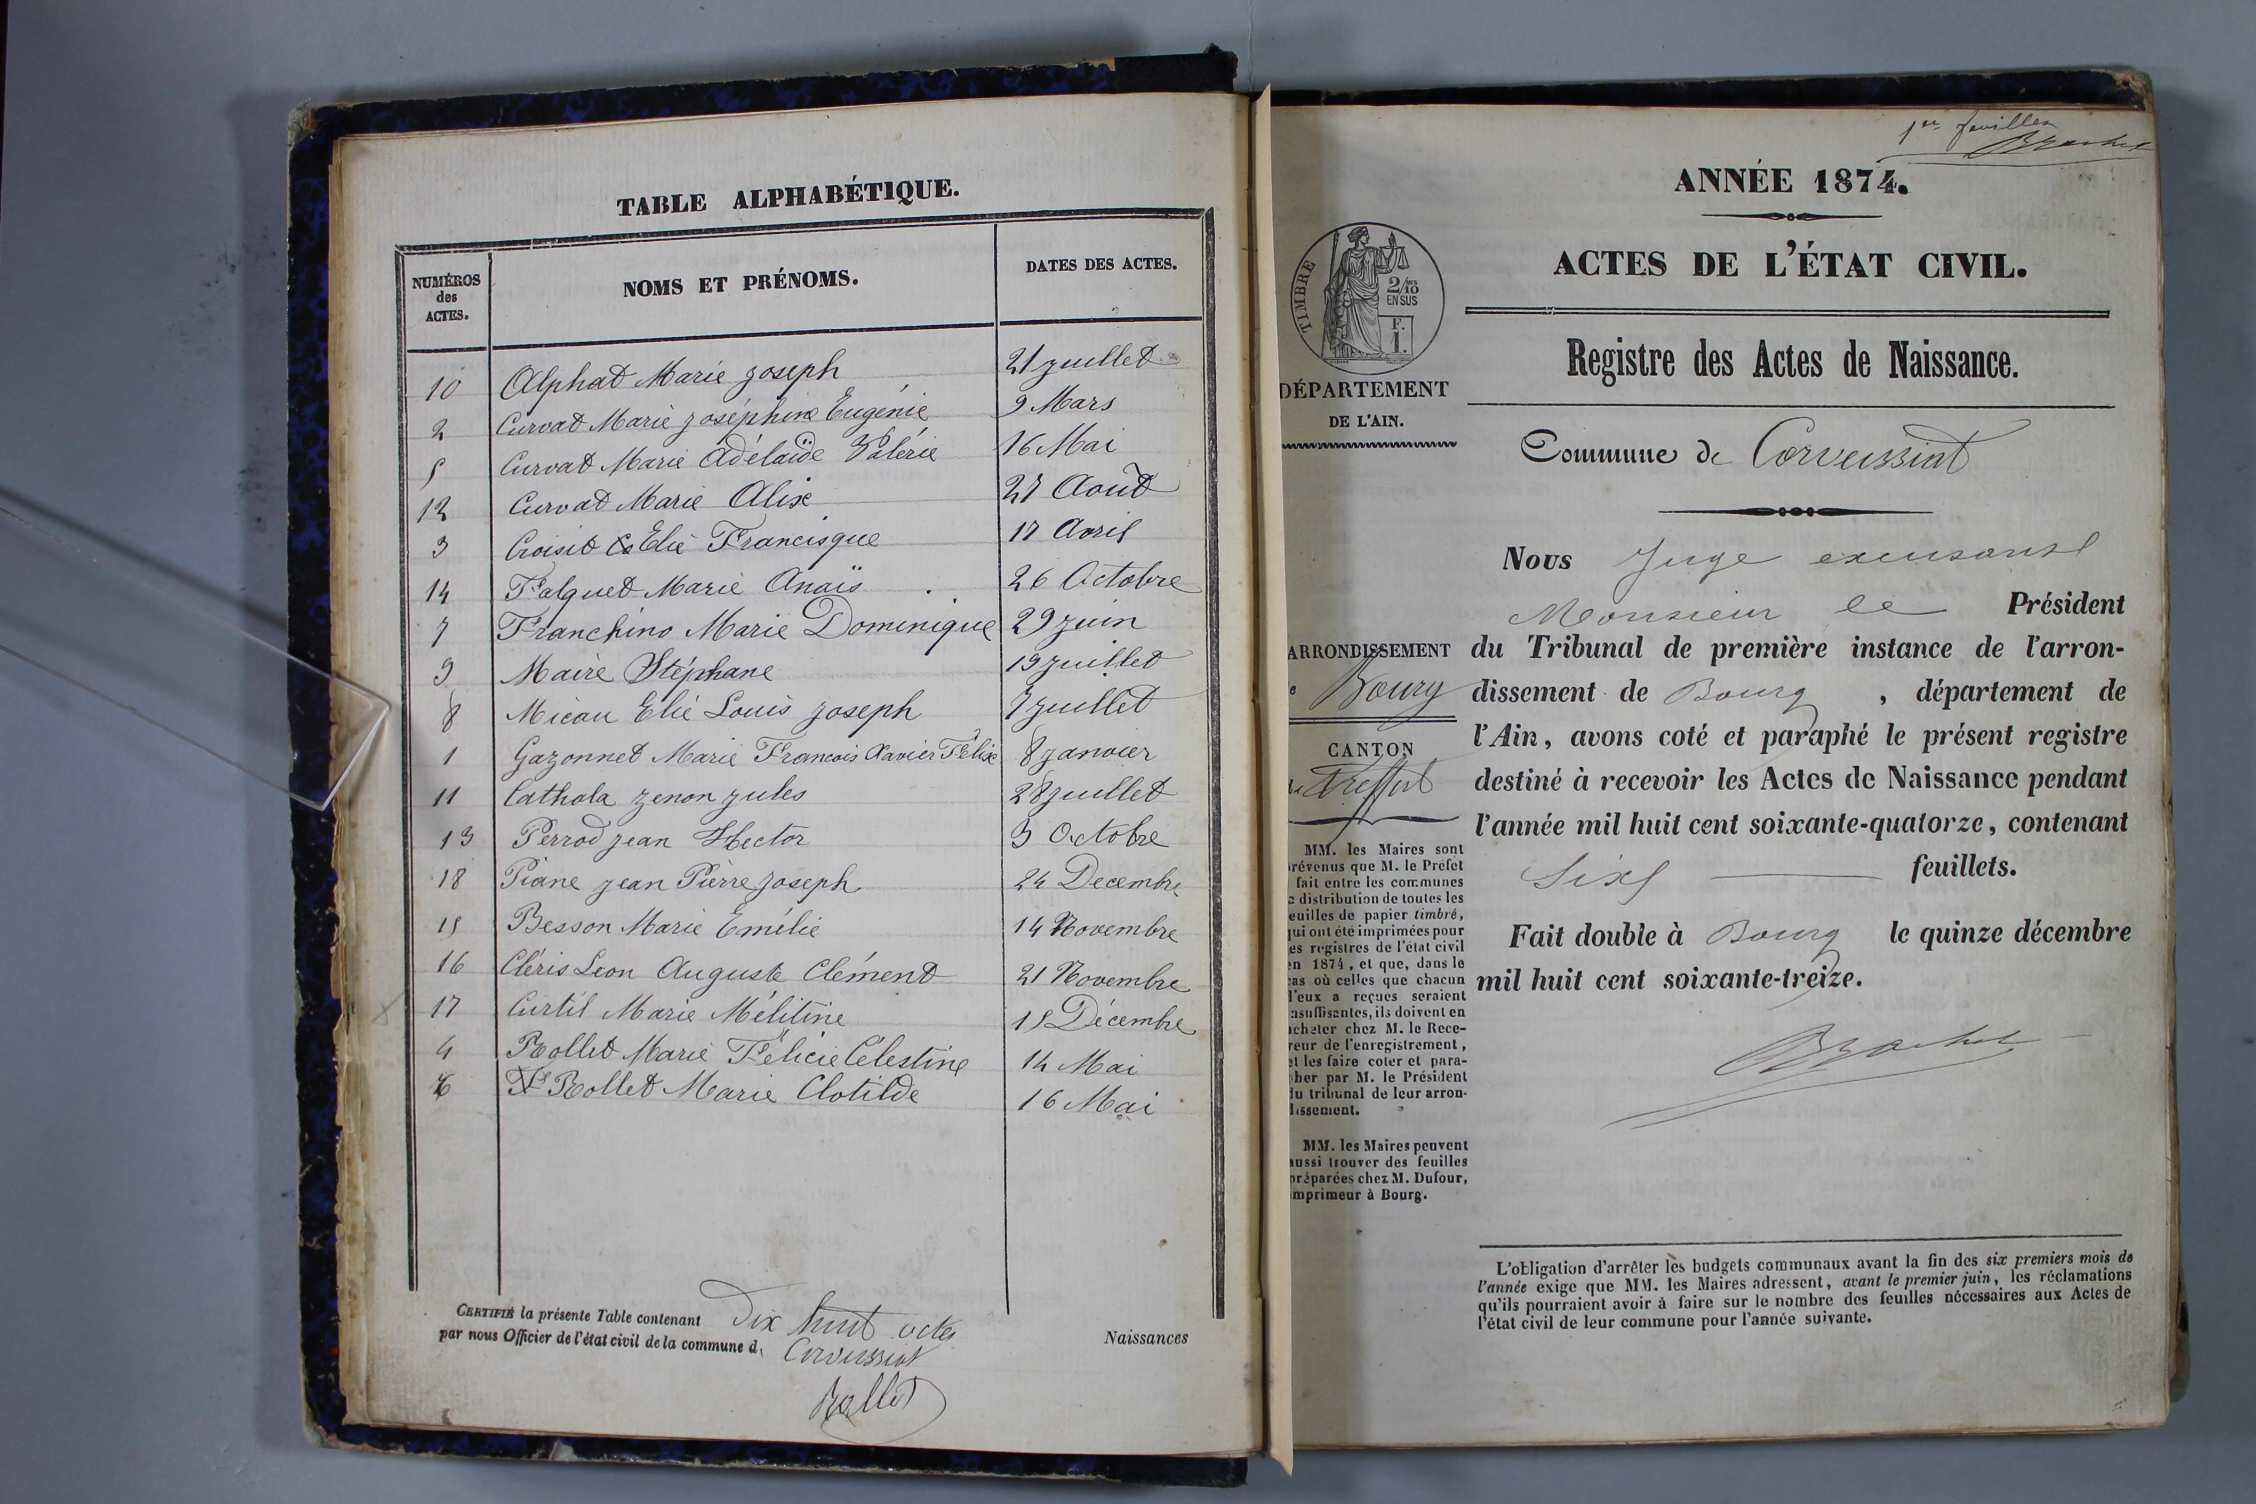 TABLE ALPHABÉTIQUE.
NUMÉROS
des
ACTES.
NOMS ET PRÉNOMS.
DATES DES ACTES.
10 Alphat Marie Joseph 21 juillet
2 Curvat Marie Joséphine Eugénie 9 Mars
5 Curvat Marie Adélaïde Valérie 16 Mai
12 Curvat Marie Alix 27 Août
3 Croisit Elie Francisque 17 Avril
14 Falquet Marie Anaïs 26 Octobre
7 Franchino Marie Dominique 29 juin
9 Maire Stéphane 19 juillet
8 Micau Elie Louis Joseph 7 juillet
1 Gazonnet Marie Francois Xavier Félix 8 janvier
11 Cathola Zenon Jules 28 juillet
13 Perrod Jean Hector 3 Octobre
18 Piane Jean Pierre Joseph 24 Decembre
15 Besson Marie Emélie 14 Novembre
16 Cléris Leon Auguste Clément 21 Novembre
17 Curtil Marie Mélitine 15 Décembre
4 Rollet Marie Félicie Célestine 14 Mai
6 Rollet Marie Clotilde 16 Mai
CERTIFIÉ la présente Table contenant Dix huit actes
par nous Officier de l'état civil de la commune d Corveissiat
Naissances
Rollet
1er feuillet
ANNÉE 1874.
TIMBRE
2/10 mes
EN SUS
F.
1.
ACTES DE L'ÉTAT CIVIL.
Registre des Actes de Naissance.
DÉPARTEMENT
DE L'AIN.
Commune de Corveissiat
ARRONDISSEMENT
Bourg
CANTON
Treffort
MM. les Maires sont
prévenus que M. le Préfet
fait entre les communes
distribution de toutes les
feuilles de papier timbré,
qui ont été imprimées pour
es registres de l'état civil
en 1874, et que, dans le
cas où celles que chacun
d'eux a reçues seraient
insuffisantes, ils doivent en
acheter chez M. le Rece-
veur de l'enregistrement,
et les faire coter et para-
pher par M. le Président
du tribunal de leur arron-
dissement.
MM. les Maires peuvent
aussi trouver des feuilles
préparées chez M. Dufour,
imprimeur à Bourg.
Nous Juge excusant
Monsieur le Président
du Tribunal de première instance de l'arron-
dissement de Bourg, département de
l'Ain, avons coté et paraphé le présent registre
destiné à recevoir les Actes de Naissance pendant
l'année mil huit cent soixante-quatorze, contenant
Six feuillets.
Fait double à Bourg le quinze décembre
mil huit cent soixante-treize.
L'obligation d'arrêter les budgets communaux avant la fin des six premiers mois de
l'année exige que MM. les Maires adressent, avant le premier juin, les réclamations
qu'ils pourraient avoir à faire sur le nombre des feuilles nécessaires aux Actes de
l'état civil de leur commune pour l'année suivante.